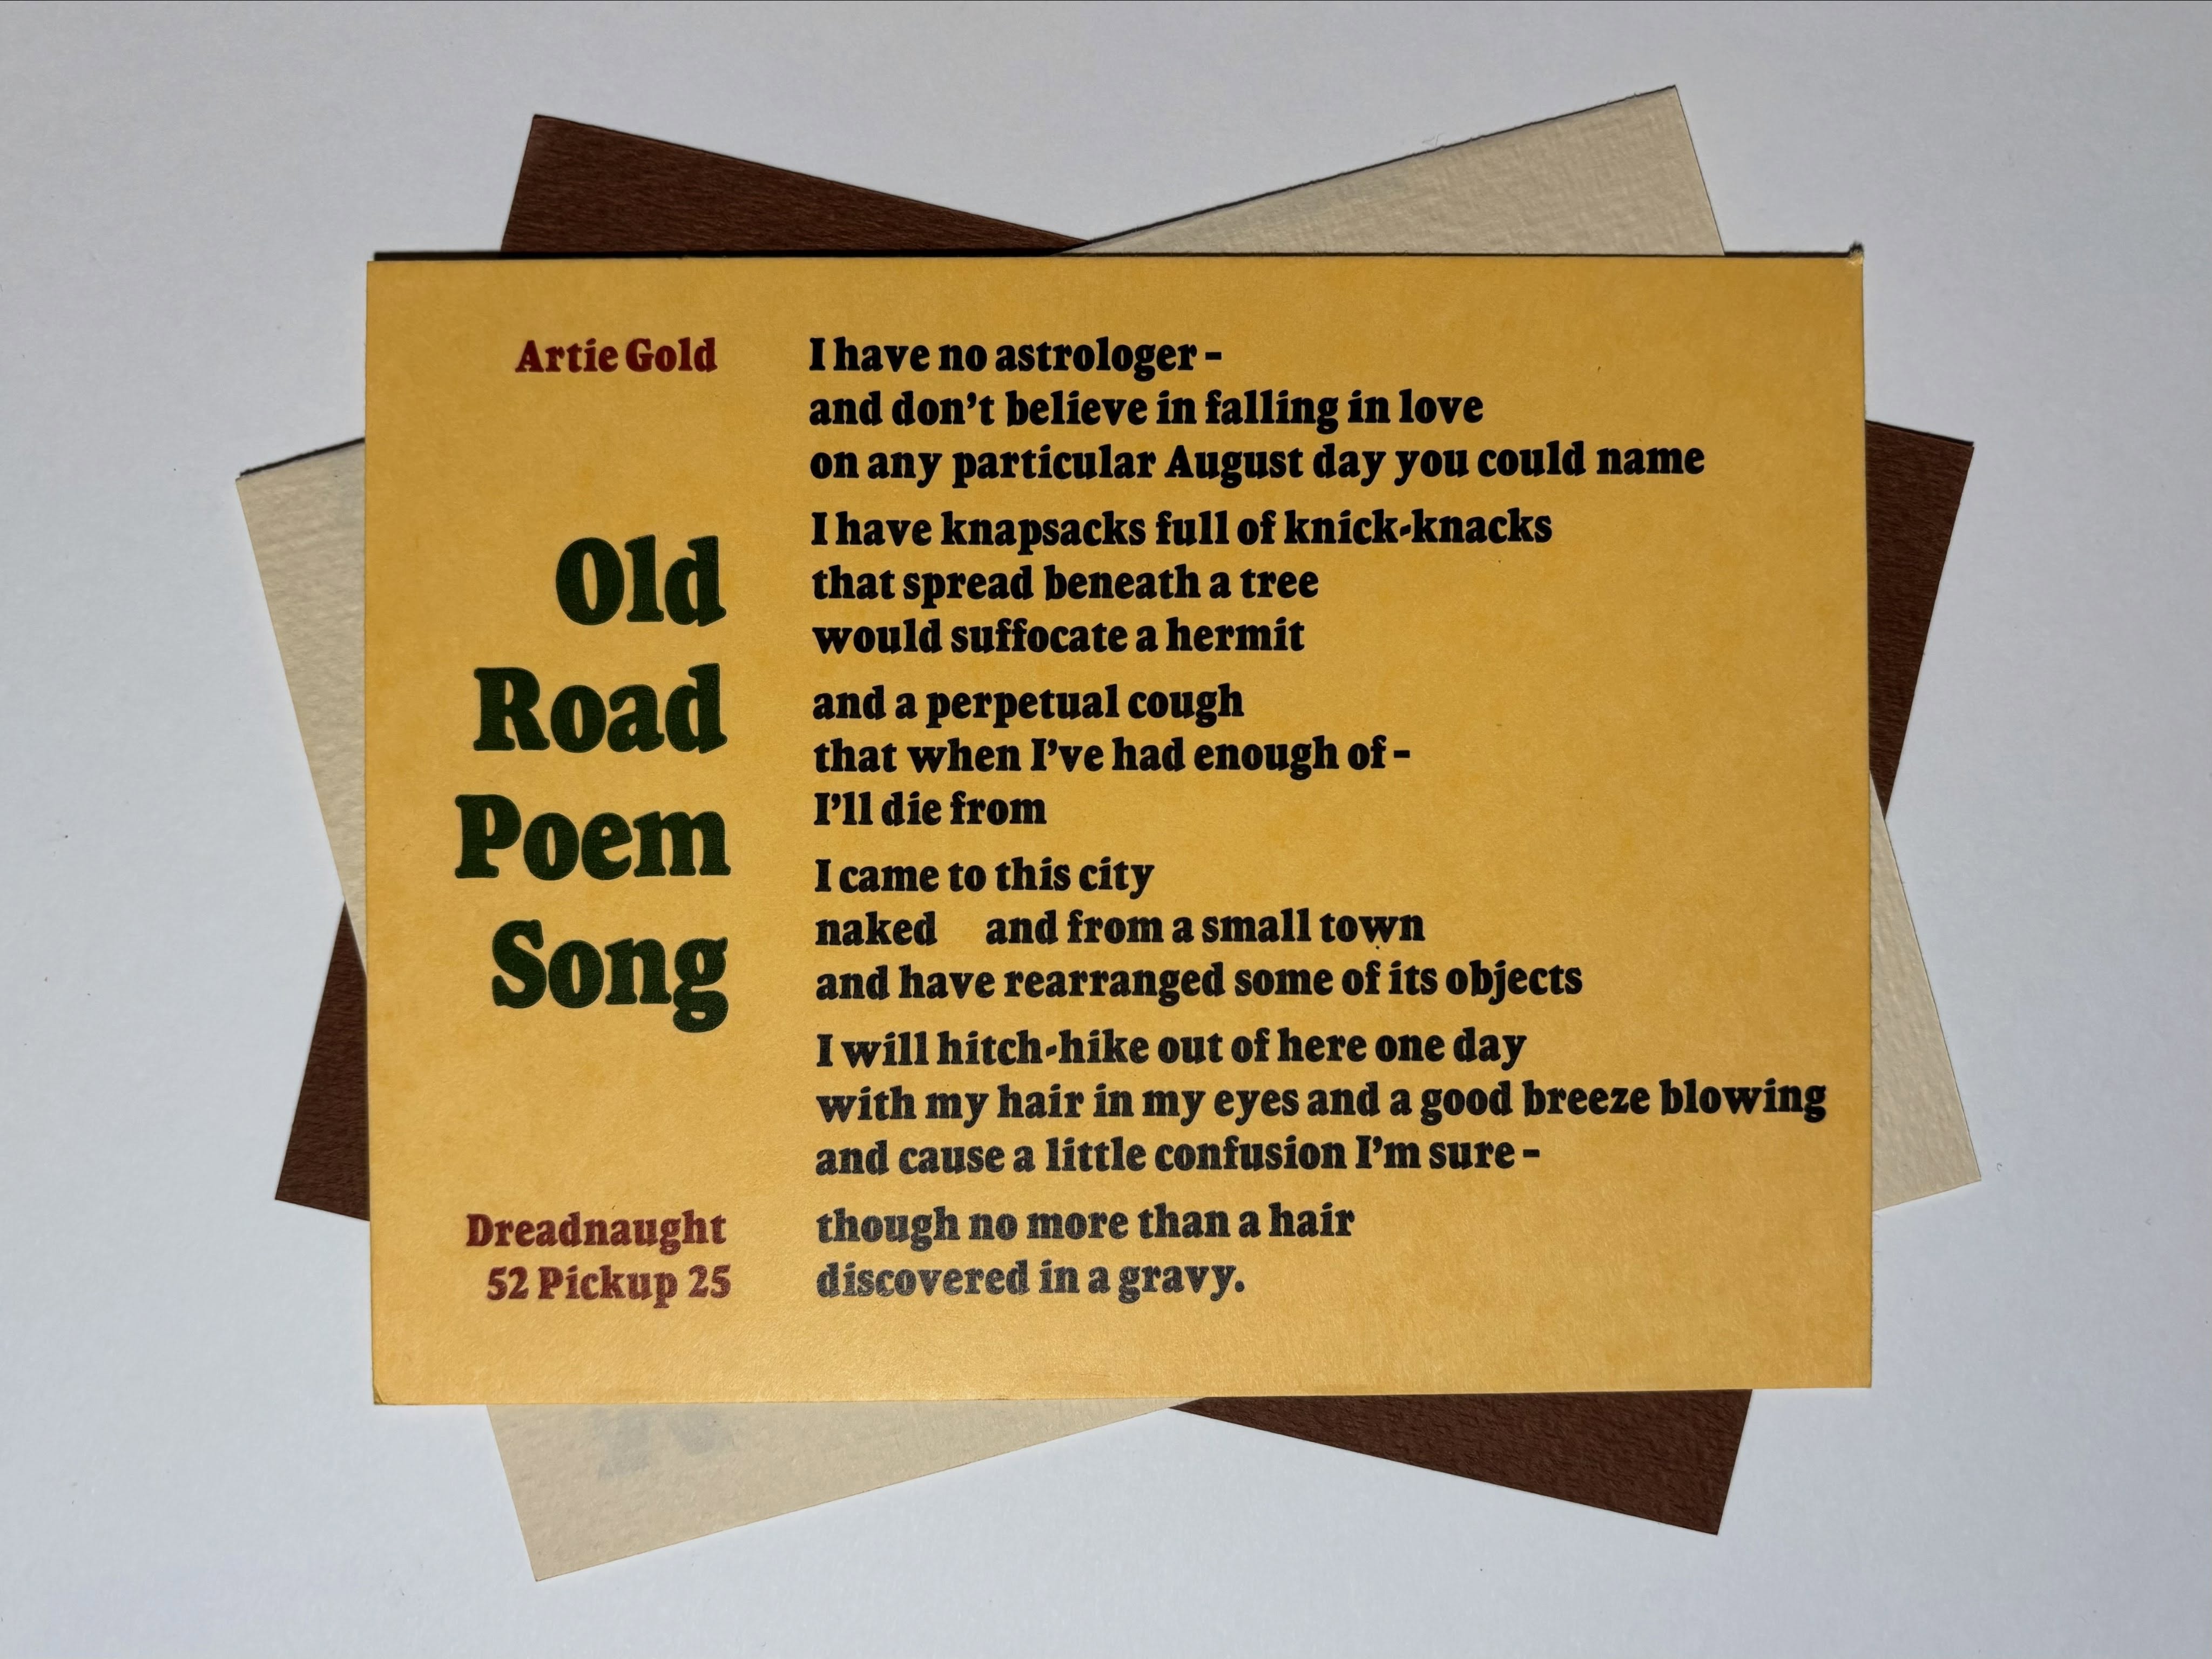 Artie Gold
Old
Road
Poem
Song
Dreadnaught
52 Pickup 25
I have no astrologer -
and don't believe in falling in love
on any particular August day you could name
I have knapsacks full of knick-knacks
that spread beneath a tree
would suffocate a hermit
and a perpetual cough
that when I've had enough of -
I'll die from
I came to this city
naked    and from a small town
and have rearranged some of its objects
I will hitch-hike out of here one day
with my hair in my eyes and a good breeze blowing
and cause a little confusion I'm sure -
though no more than a hair
discovered in a gravy.